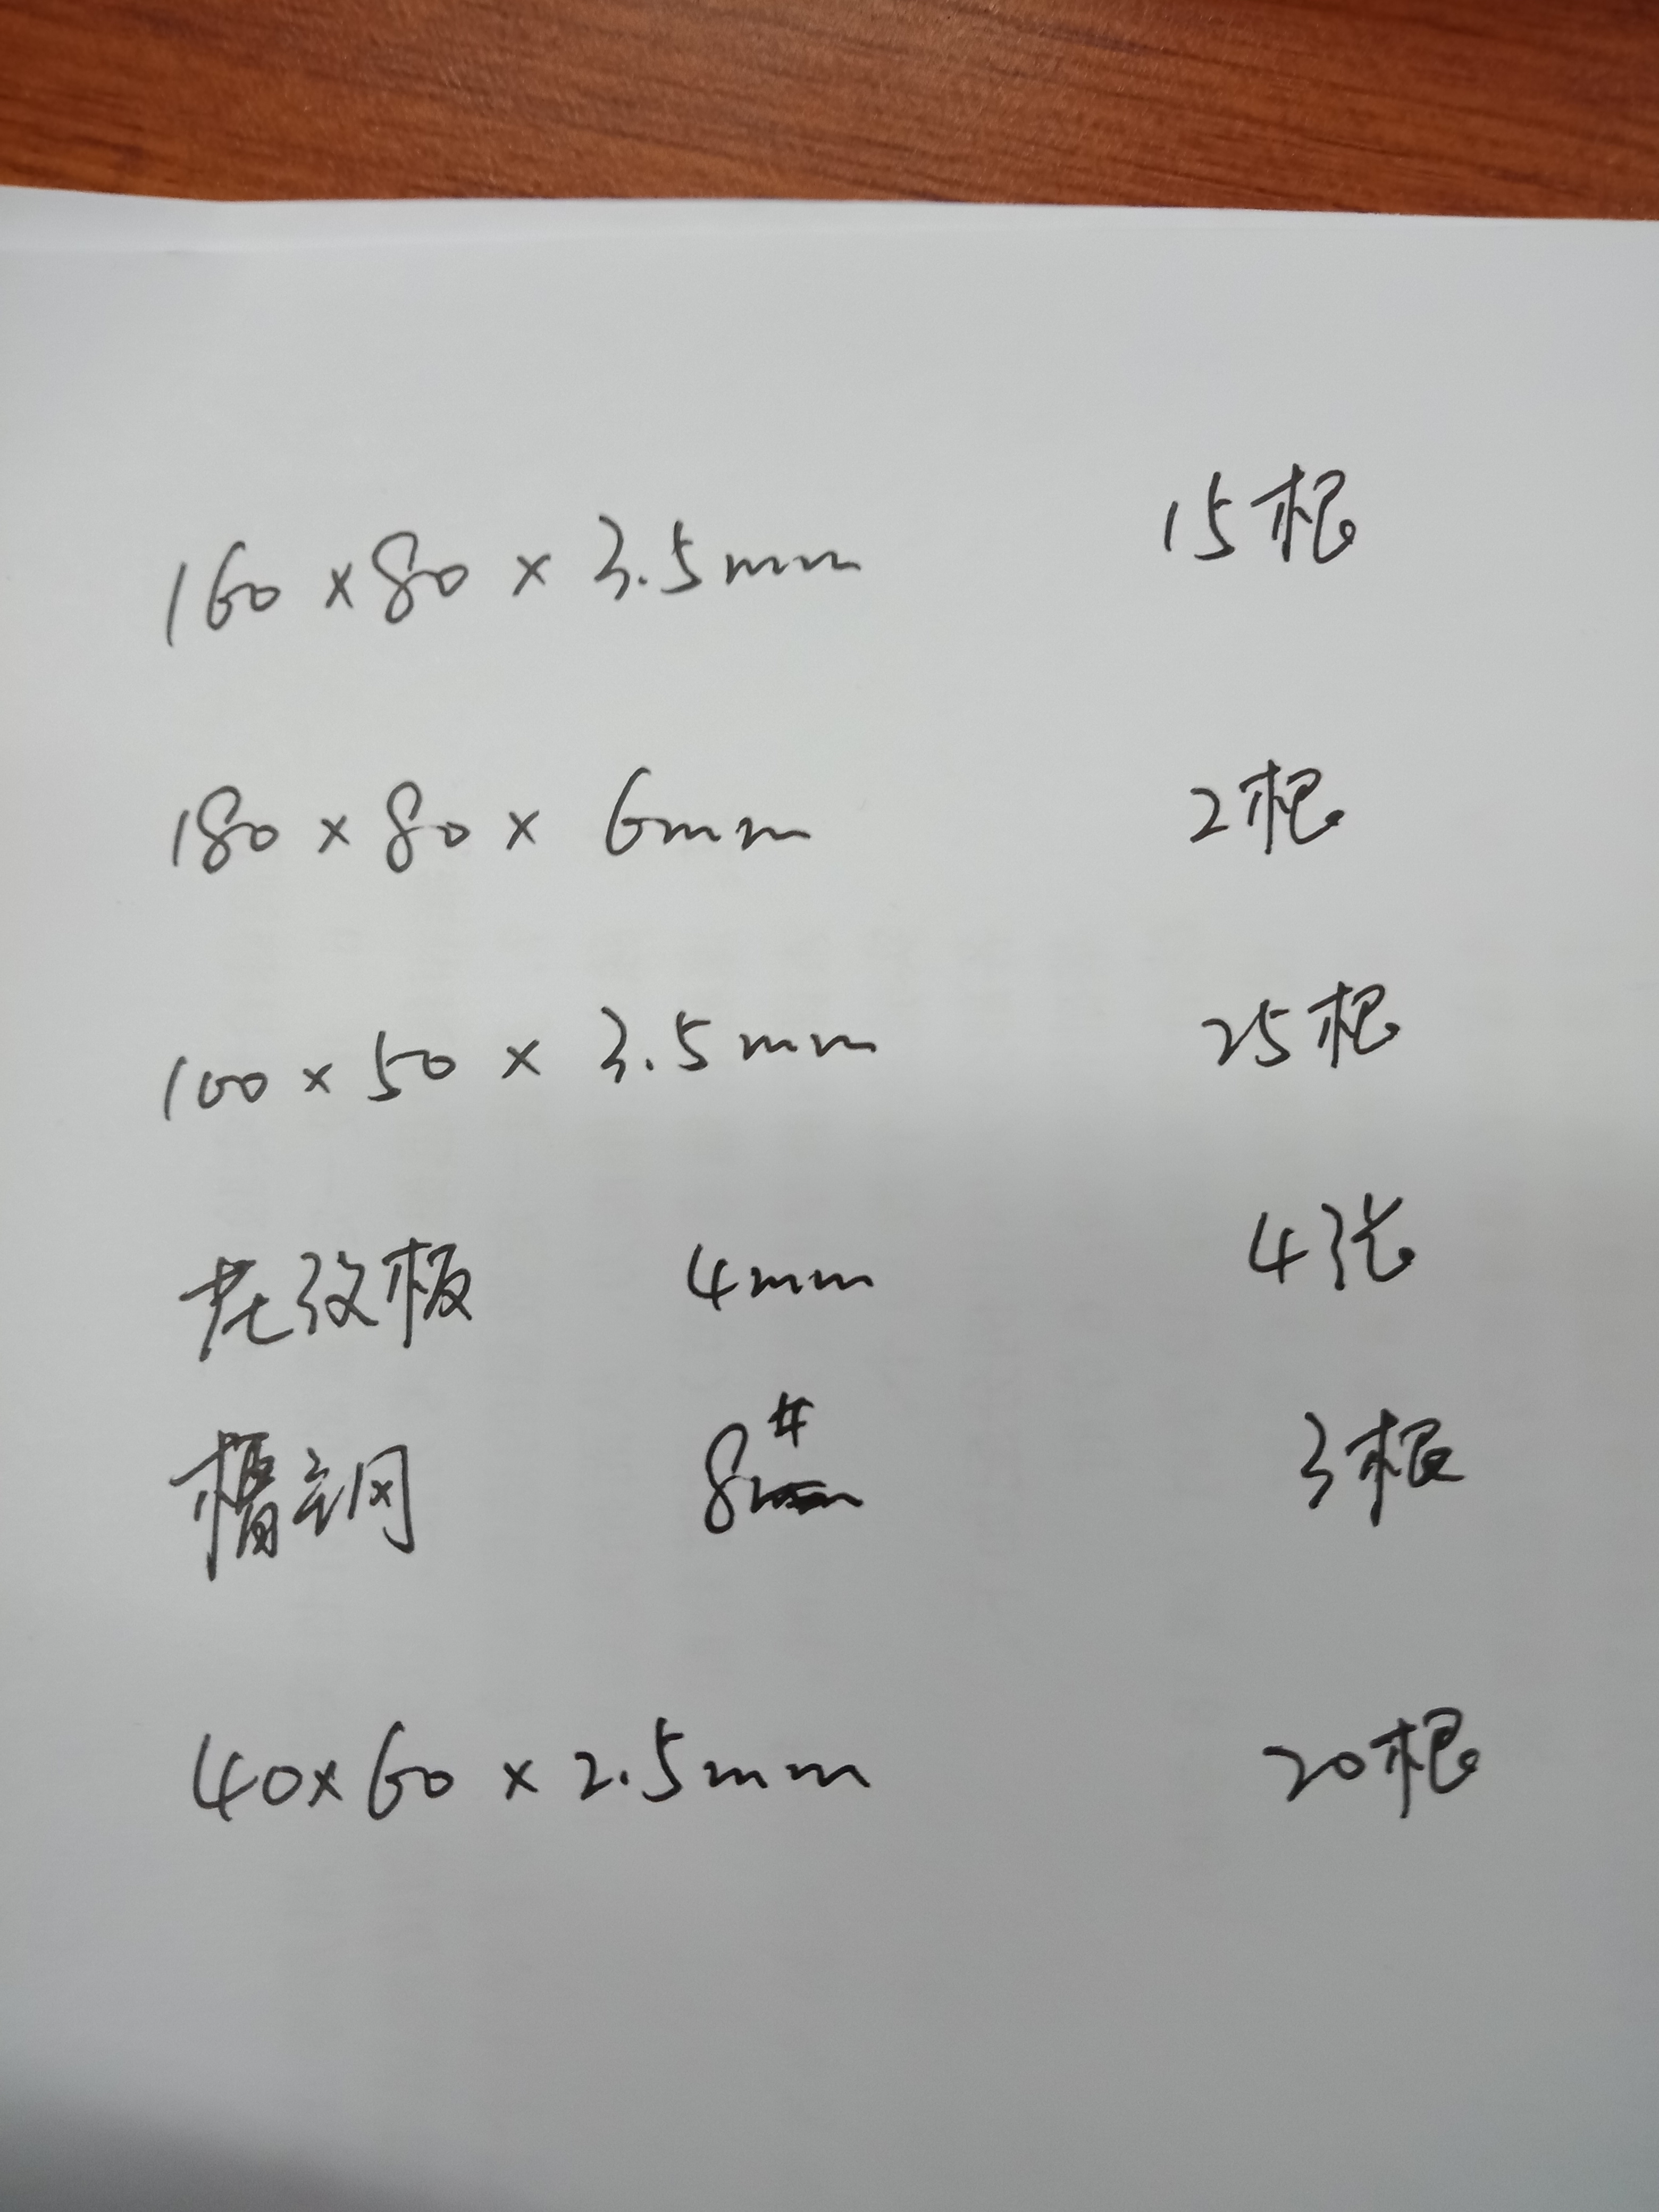 160×80×3.5mm 15根
180×80×6mm 2根
100×50×3.5mm 25根
花纹板 4mm 4张
槽钢 8# 3根
40×60×2.5mm 20根